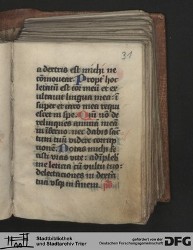 31
a dextris est michi ne
comouear. Propt hoc
letatum est cor meu et ex
ultauit lingua mea
super et caro mea requi
escet in spe. Qm no de
relinques anima mea
in iferno: nec dabis sac
tum tuu videre corrup
tionem. Notas michi fe
cisti vias vite: adiple
me leticia cu vultu tuo
delectationes in dextra
tua usq in finem
Stadtbibliothek
und Stadtarchiv Trier
gefördert von der
Deutschen Forschungsgemeinschaft
DFG